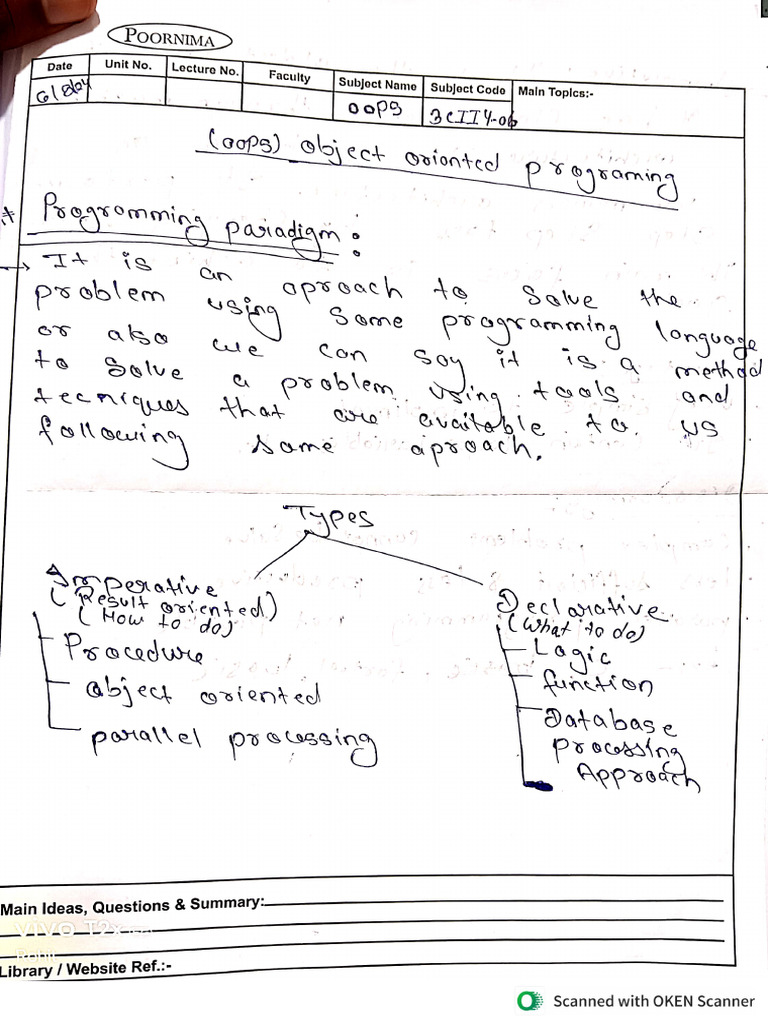 POORNIMA
Date Unit No. Lecture No. Faculty Subject Name Subject Code Main Topics:-
OOPS 3CII4-06
(OOPS) object orionted programing
Programming paradigm:
→ It is an aproach to solve the
problem using some programming language
or also we can say it is a method
to solve a problem using tools and
tecniques that are available to us
following some aproach.
Types
Imperative
(Result oriented)
(How to do)
Procedure
object oriented
parallel processing
Declarative
(What to do)
Logic
function
Database
processing
Approach
Main Ideas, Questions & Summary:
Library / Website Ref.:-
Scanned with OKEN Scanner